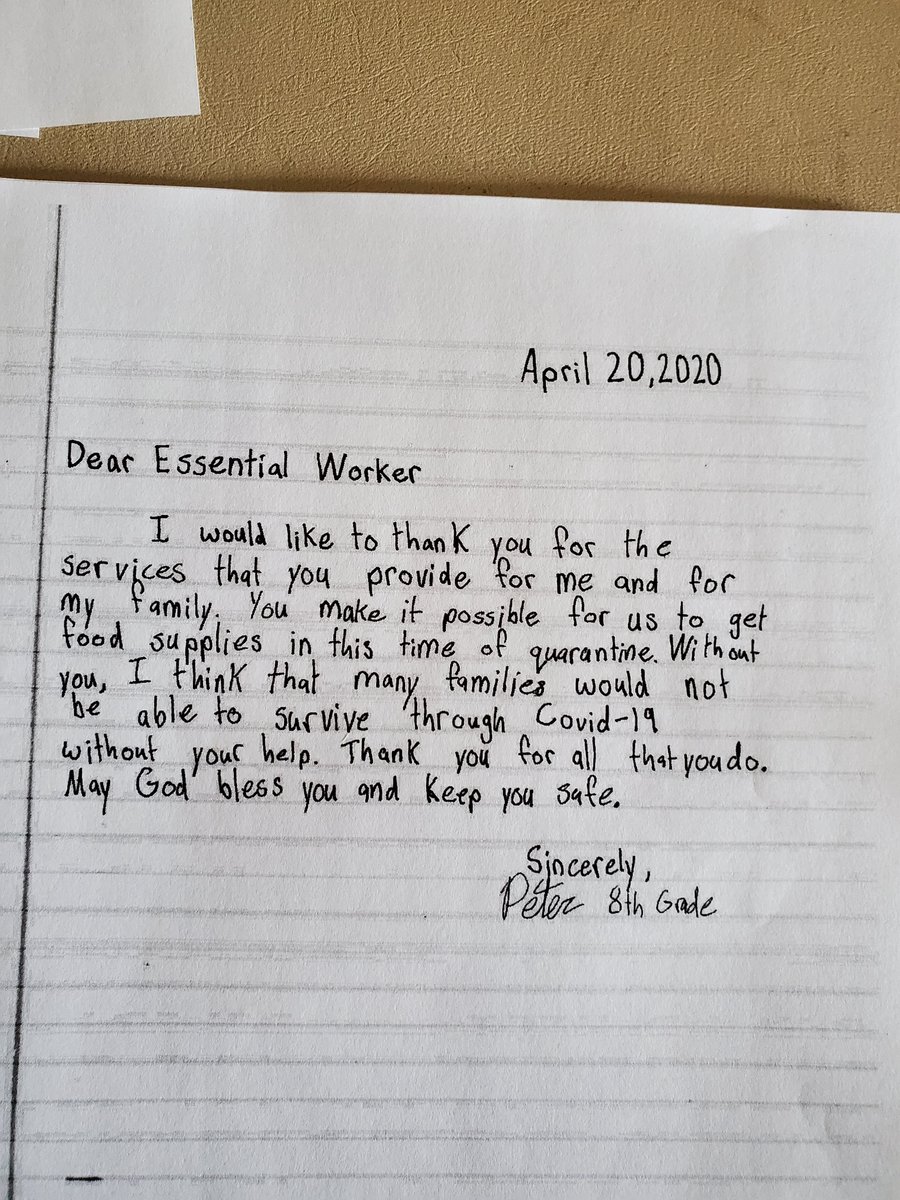 April 20,2020
Dear Essential Worker
I would like to thank you for the
services that you provide for me and for
my family. You make it possible for us to get
food supplies in this time of quarantine. Without
you, I think that many families would not
be able to survive through Covid-19
without your help. Thank you for all that you do.
May God bless you and keep you safe.
Sincerely,
Peter 8th Grade